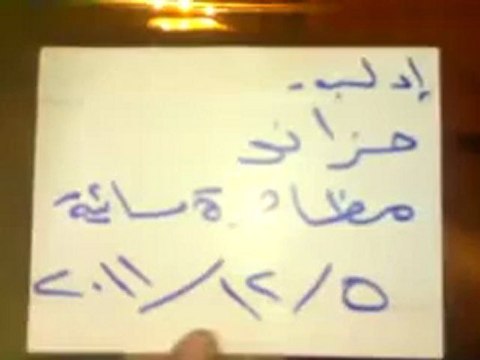 إدلب -
حزانو
مظاهرة مسائية
٢٠١١/١٢/٥